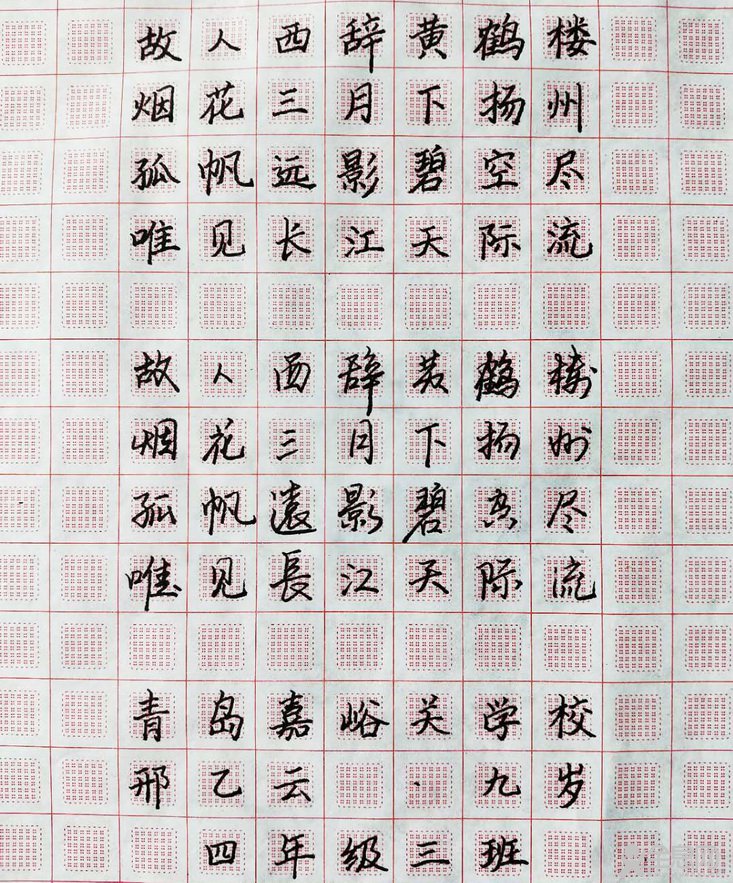 故人西辞黄鹤楼
烟花三月下扬州
孤帆远影碧空尽
唯见长江天际流
故人西辞黄鹤楼
烟花三月下扬州
孤帆遠影碧空尽
唯见長江天际流
青岛嘉峪关学校
邢乙云 九岁
四年级三班